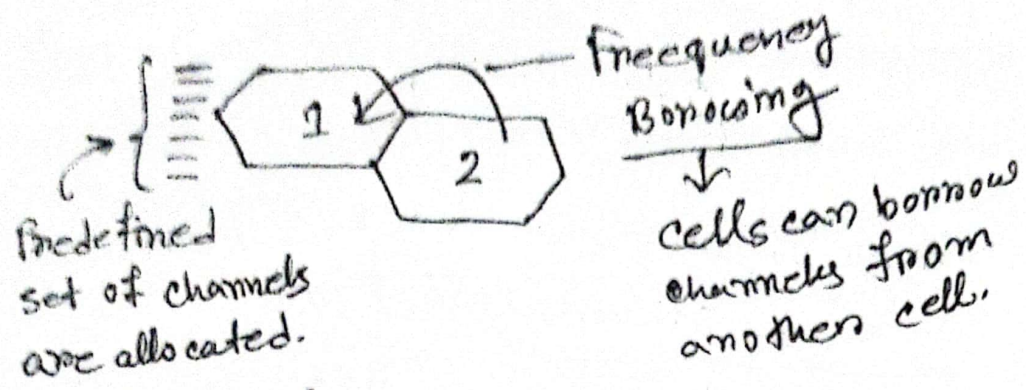 Freequency
Borrowing
1
2
Predefined
set of channels
are allocated.
cells can borrow
channels from
another cell.